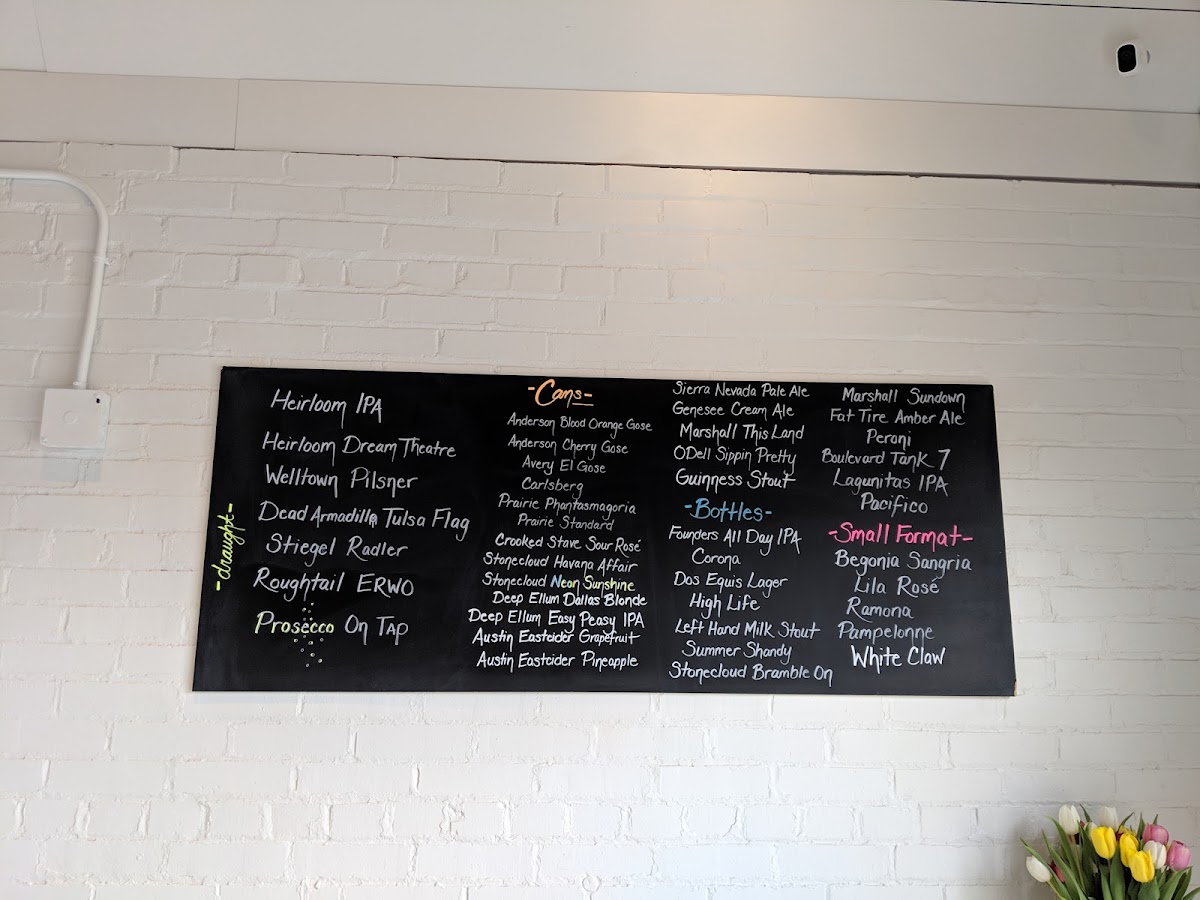 -draught-
Heirloom IPA
Heirloom Dream Theatre
Welltown Pilsner
Dead Armadillo Tulsa Flag
Stiegel Radler
Roughtail ERWO
Prosecco On Tap
-Cans-
Anderson Blood Orange Gose
Anderson Cherry Gose
Avery El Gose
Carlsberg
Prairie Phantasmagoria
Prairie Standard
Crooked Stave Sour Rosé
Stonecloud Havana Affair
Stonecloud Neon Sunshine
Deep Ellum Dallas Blonde
Deep Ellum Easy Peasy IPA
Austin Eastcider Grapefruit
Austin Eastcider Pineapple
Sierra Nevada Pale Ale
Genesee Cream Ale
Marshall This Land
ODell Sippin Pretty
Guinness Stout
-Bottles-
Founders All Day IPA
Corona
Dos Equis Lager
High Life
Left Hand Milk Stout
Summer Shandy
Stonecloud Bramble On
Marshall Sundown
Fat Tire Amber Ale
Peroni
Boulevard Tank 7
Lagunitas IPA
Pacifico
-Small Format-
Begonia Sangria
Lila Rosé
Ramona
Pampelonne
White Claw